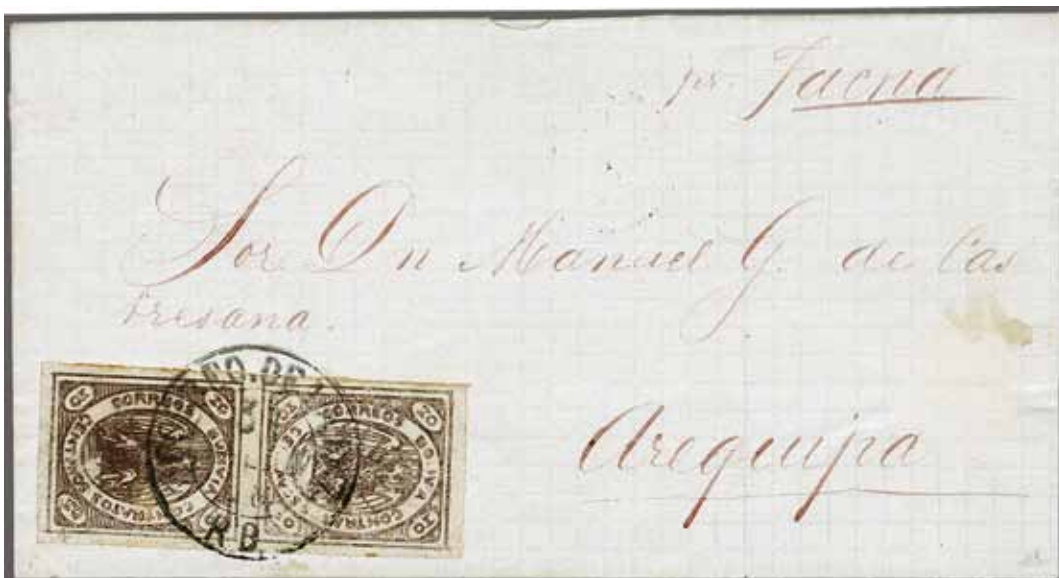 pr. Tacna
Sor Dn Manuel G. de Cas
tresana.
Arequipa
20 CORREOS BOLIVIA 20
CONTRATOS
20 CORREOS BOLIVIA 20
CONTRATOS
R B